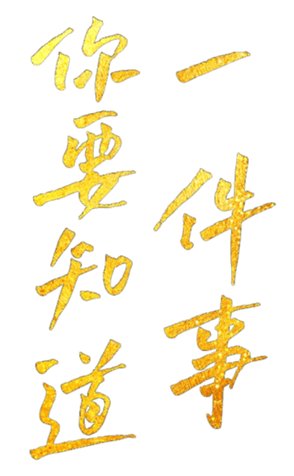 一件事
你要知道